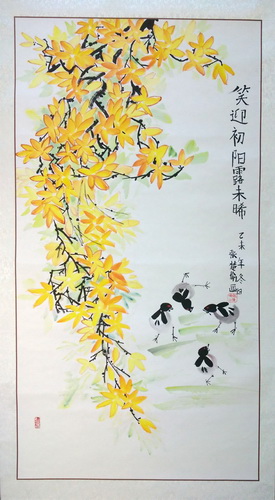 笑迎初阳露未晞
乙未年冬